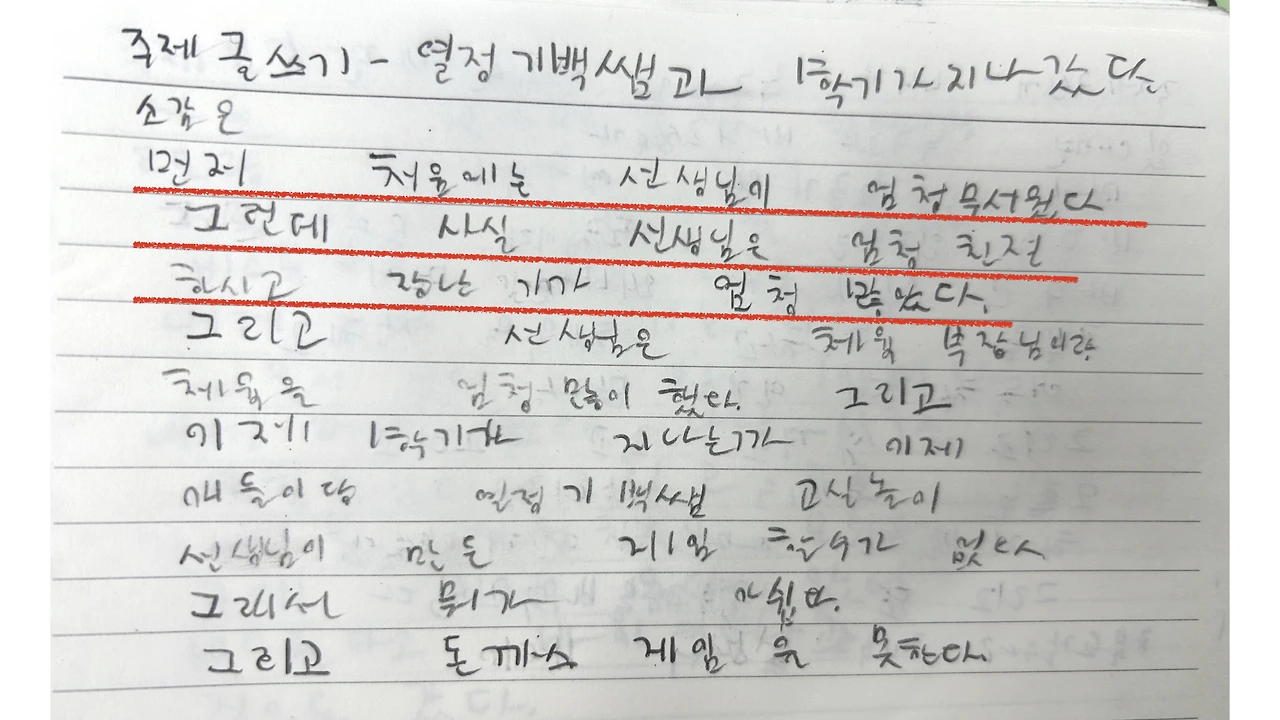 주제 글쓰기 - 열정 기백쌤과 1학기가 지나갔다.
소감은
먼저 처음에는 선생님이 엄청 무서웠다
그런데 사실 선생님은 엄청 친절
하시고 장난기가 엄청 많았다.
그리고 선생님은 체육 부장님이라
체육을 엄청 많이 했다. 그리고
이제 1학기가 지나는가 이제
애들이랑 열정 기백쌤 교실놀이
선생님이 만든 게임 할수가 없다
그래서 뭔가 아쉽다.
그리고 돈까스 게임을 못한다.